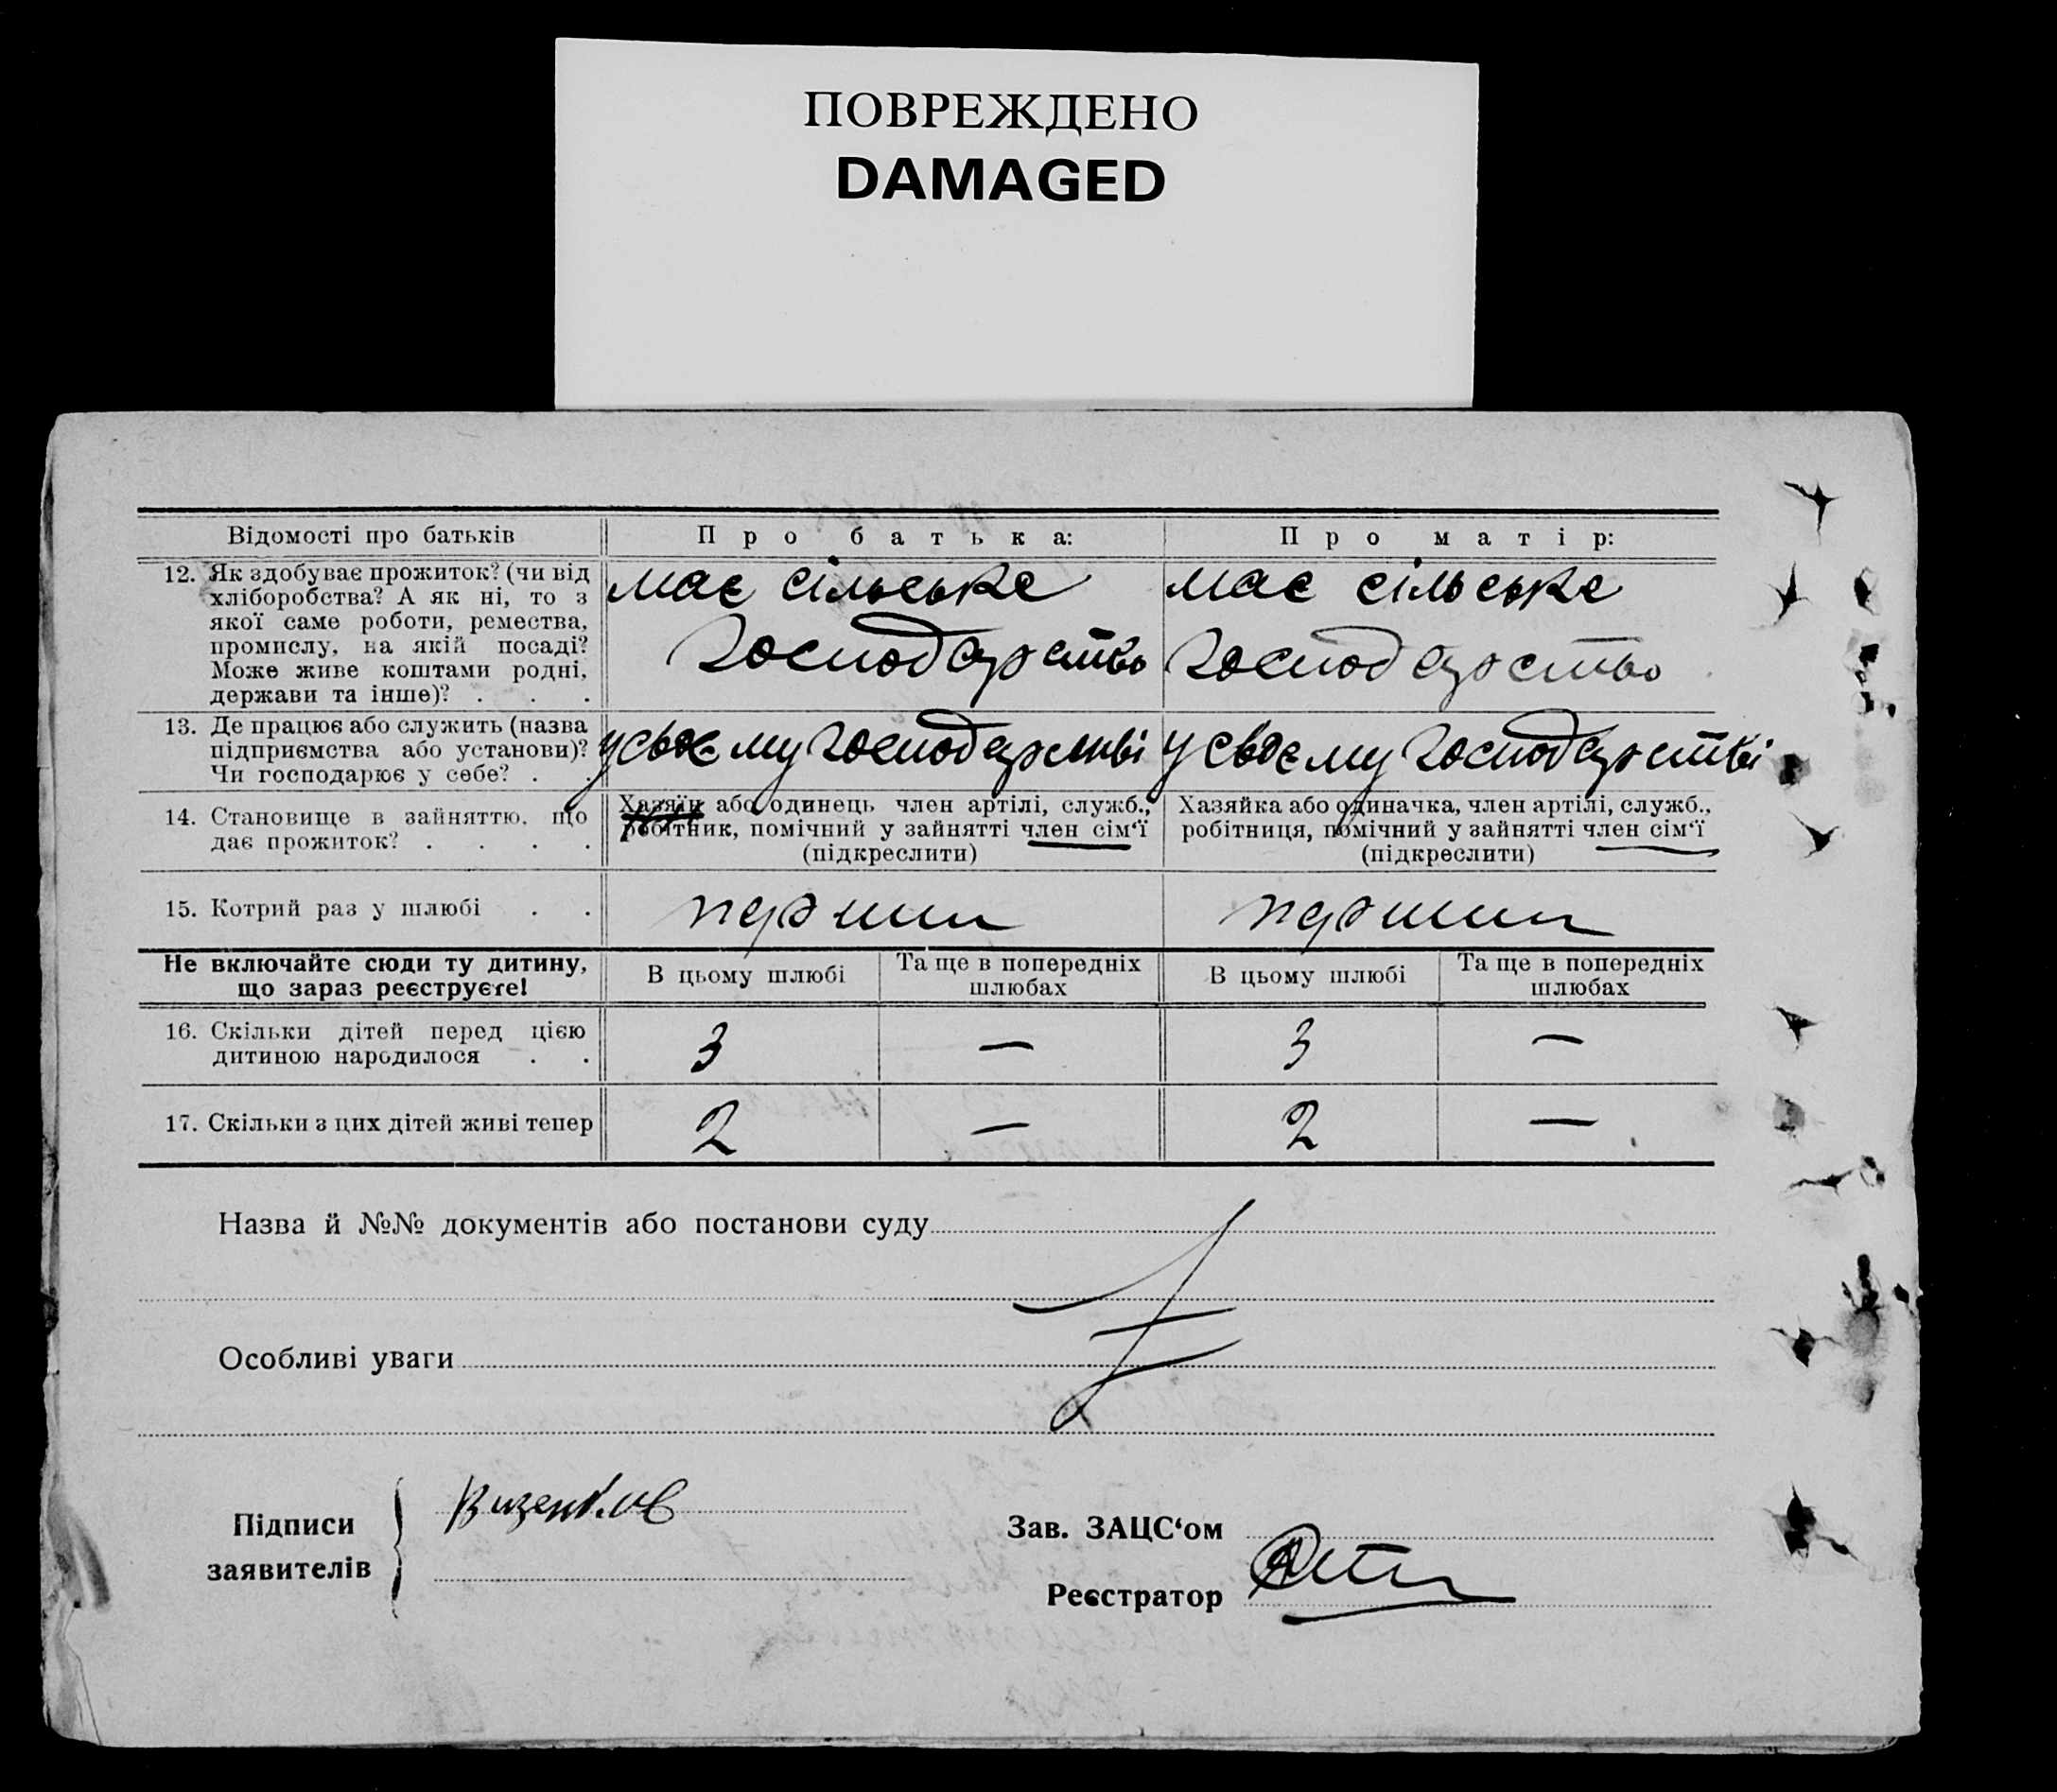 ПОВРЕЖДЕНО
DAMAGED
Відомості про батьків
Про батька:
Про матір:
12. Як здобуває прожиток? (чи від
хліборобства? А як ні, то з
якої саме роботи, ремества,
промислу, на якій посаді?
Може живе коштами родні,
держави та інше)? . . .
має сільське
господарство
має сільське
господарство
13. Де працює або служить (назва
підприємства або установи)?
Чи господарює у себе? . .
у своєму господарстві
у своєму господарстві
14. Становище в зайняттю, що
дає прожиток? . . . .
Хазяїн або одинець член артілі, служб.,
робітник, помічний у зайнятті член сім‘ї
(підкреслити)
Хазяйка або одиначка, член артілі, служб.,
робітниця, помічний у зайнятті член сім‘ї
(підкреслити)
15. Котрий раз у шлюбі . .
перший
перший
Не включайте сюди ту дитину,
що зараз реєструєте!
В цьому шлюбі
Та ще в попередніх
шлюбах
В цьому шлюбі
Та ще в попередніх
шлюбах
16. Скільки дітей перед цією
дитиною народилося . .
3
—
3
—
17. Скільки з цих дітей живі тепер
2
—
2
—
Назва й №№ документів або постанови суду
Особливі уваги
Підписи
заявителів
Зав. ЗАЦС‘ом
Реєстратор